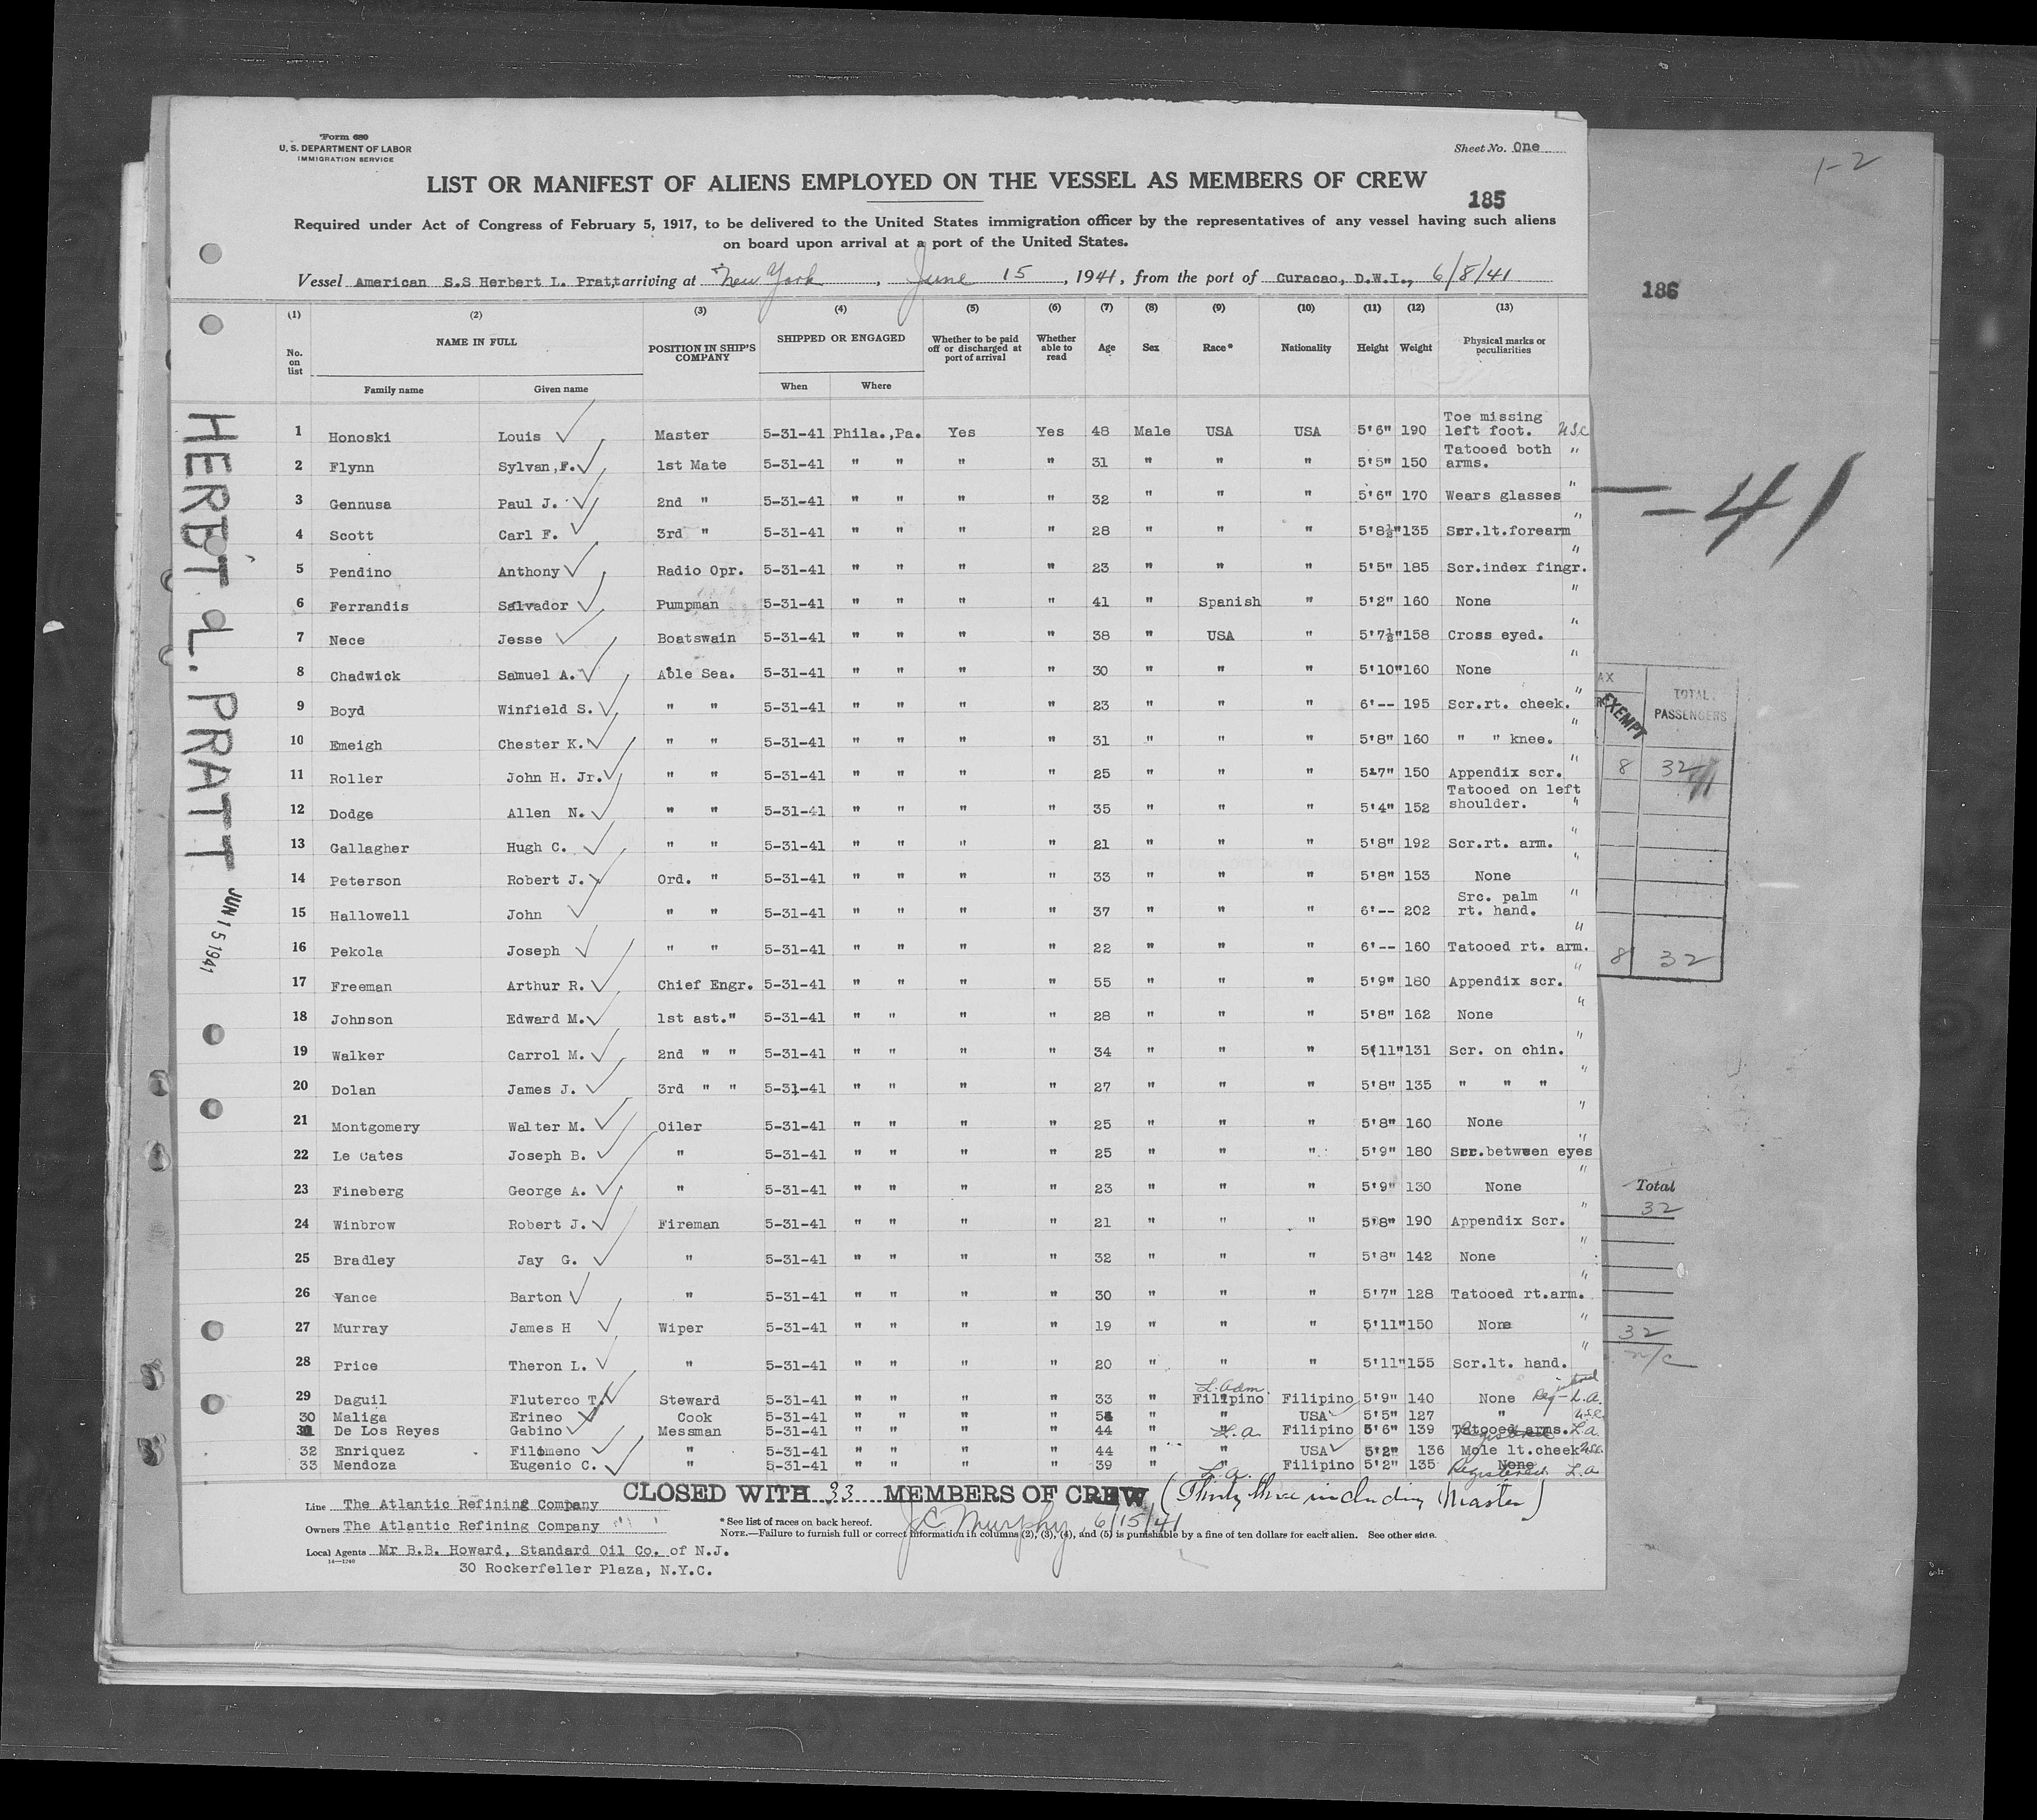 Form 680
U. S. DEPARTMENT OF LABOR
IMMIGRATION SERVICE
Sheet No. One
1-2
LIST OR MANIFEST OF ALIENS EMPLOYED ON THE VESSEL AS MEMBERS OF CREW
185
Required under Act of Congress of February 5, 1917, to be delivered to the United States immigration officer by the representatives of any vessel having such aliens
on board upon arrival at a port of the United States.
Vessel American S.S Herbert L. Pratt, arriving at New York, June 15, 1941, from the port of Curacao, D.W.I., 6/8/41
186
(1) (2) (3) (4) (5) (6) (7) (8) (9) (10) (11) (12) (13)
No. on list NAME IN FULL POSITION IN SHIP'S COMPANY SHIPPED OR ENGAGED Whether to be paid off or discharged at port of arrival Whether able to read Age Sex Race* Nationality Height Weight Physical marks or peculiarities
Family name Given name When Where
1 Honoski Louis Master 5-31-41 Phila.,Pa. Yes Yes 48 Male USA USA 5'6" 190 Toe missing left foot. U.S.C
2 Flynn Sylvan,F. 1st Mate 5-31-41 " " " " 31 " " " 5'5" 150 Tatooed both arms. "
3 Gennusa Paul J. 2nd " 5-31-41 " " " " 32 " " " 5'6" 170 Wears glasses "
4 Scott Carl F. 3rd " 5-31-41 " " " " 28 " " " 5'8½" 135 Scr.lt.forearm "
5 Pendino Anthony Radio Opr. 5-31-41 " " " " 23 " " " 5'5" 185 Scr.index fingr. "
6 Ferrandis Salvador Pumpman 5-31-41 " " " " 41 " Spanish " 5'2" 160 None "
7 Nece Jesse Boatswain 5-31-41 " " " " 38 " USA " 5'7½" 158 Cross eyed. "
8 Chadwick Samuel A. Able Sea. 5-31-41 " " " " 30 " " " 5'10" 160 None "
9 Boyd Winfield S. " " 5-31-41 " " " " 23 " " " 6'-- 195 Scr.rt. cheek. "
10 Emeigh Chester K. " " 5-31-41 " " " " 31 " " " 5'8" 160 " " knee. "
11 Roller John H. Jr. " " 5-31-41 " " " " 25 " " " 5-7" 150 Appendix scr. "
12 Dodge Allen N. " " 5-31-41 " " " " 35 " " " 5'4" 152 Tatooed on left shoulder. "
13 Gallagher Hugh C. " " 5-31-41 " " " " 21 " " " 5'8" 192 Scr.rt. arm. "
14 Peterson Robert J. Ord. " 5-31-41 " " " " 33 " " " 5'8" 153 None "
15 Hallowell John " " 5-31-41 " " " " 37 " " " 6'-- 202 Src. palm rt. hand. "
16 Pekola Joseph " " 5-31-41 " " " " 22 " " " 6'-- 160 Tatooed rt. arm. "
17 Freeman Arthur R. Chief Engr. 5-31-41 " " " " 55 " " " 5'9" 180 Appendix scr. "
18 Johnson Edward M. 1st ast." 5-31-41 " " " " 28 " " " 5'8" 162 None "
19 Walker Carrol M. 2nd " " 5-31-41 " " " " 34 " " " 5'11" 131 Scr. on chin. "
20 Dolan James J. 3rd " " 5-31-41 " " " " 27 " " " 5'8" 135 " " " "
21 Montgomery Walter M. Oiler 5-31-41 " " " " 25 " " " 5'8" 160 None "
22 Le Cates Joseph B. " 5-31-41 " " " " 25 " " " 5'9" 180 Scr.between eyes "
23 Fineberg George A. " 5-31-41 " " " " 23 " " " 5'9" 130 None "
24 Winbrow Robert J. Fireman 5-31-41 " " " " 21 " " " 5'8" 190 Appendix Scr. "
25 Bradley Jay G. " 5-31-41 " " " " 32 " " " 5'8" 142 None "
26 Vance Barton " 5-31-41 " " " " 30 " " " 5'7" 128 Tatooed rt.arm. "
27 Murray James H Wiper 5-31-41 " " " " 19 " " " 5'11" 150 None "
28 Price Theron L. " 5-31-41 " " " " 20 " " " 5'11" 155 Scr.lt. hand. "
29 Daguil Fluterco T. Steward 5-31-41 " " " " 33 " L. Adm. Filipino Filipino 5'9" 140 None Registered L.A.
30 Maliga Erineo Cook 5-31-41 " " " " 54 " " USA 5'5" 127 " U.S.C.
31 De Los Reyes Gabino Messman 5-31-41 " " " " 44 " " L.A. Filipino 5'6" 139 Tatooed arms. Registered L.A.
32 Enriquez Filomeno " 5-31-41 " " " " 44 " " USA 5'2" 136 Mole lt.cheek USC.
33 Mendoza Eugenio C. " 5-31-41 " " " " 39 " " L.A. Filipino 5'2" 135 None Registered L.A.
CLOSED WITH 33 MEMBERS OF CREW (Thirty three including Master)
J C Murphy 6/15/41
Line The Atlantic Refining Company
Owners The Atlantic Refining Company
* See list of races on back hereof.
NOTE.—Failure to furnish full or correct information in columns (2), (3), (4), and (5) is punishable by a fine of ten dollars for each alien. See other side.
Local Agents Mr B.B. Howard, Standard Oil Co. of N.J.
14—1240
30 Rockerfeller Plaza, N.Y.C.
HERBT L. PRATT
JUN 15 1941
-41
AX
EXEMPT
TOTAL PASSENGERS
8 32
8 32
Total
32
32
n/c